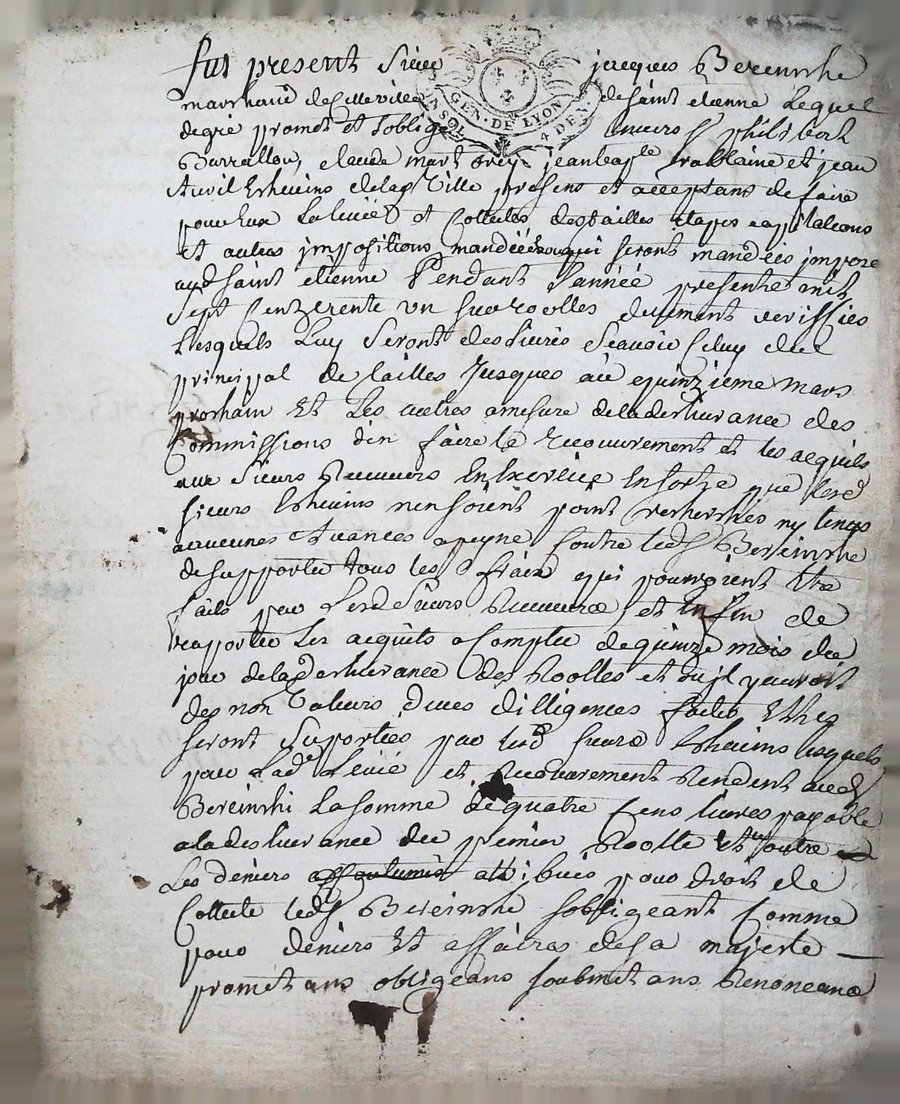 fut present Sieur jacques Bereinshe
marchand de cette ville de saint etienne Lequel
de gré promet et soblige envers philibert
Barrallon, claude mart jean bap.te trablaine et jean
Auril Eshevins de lad ville presens et acceptans de faire
pour Eux La levée et Collecte des tailles etapes capitations
et autres impositions mandées ou qui seront mandées imposé
aud saint etienne Pendant l'année presente mil
Sept Cent trente un sur roolles duement veriffiés
Lesquels Luy Seront deslivrés Scavoir Celuy du
principal de tailles Jusques au quinzieme mars
prochain Et Les autres amesure de la deslivrance des
Commissions d'en faire le recouvrement et les acquits
aux Sieurs Receveurs En Ensorte que lesd
sieurs Eshevins n'en soient point recherchés ny tenus
aucunes Avances apeyne Contre led Bereinshe
de supporter tous les fraix qui pourroient Etre
faits par Lesd Sieurs Receveurs et Enfin de
raporter Les acquits a Compter de quinze mois du
jour de lad deslivrance des Roolles et ou jl y auroit
des non Valeurs dues dilligences faites Elles
seront Suportées par lesd sieurs Eshevins lesquels
pour Lad.e Levée et Recouvrement Rendent aud
Bereinshe La somme de quatre Cens livres payable
a la deslivrance du premier Roolle Et outre
Les deniers attribués pour droit de
Collecte led Bereinshe sobligeant Comme
pour deniers Et affaires de sa majesté
promettans obligeans soubmettans Renoncans
GEN. DE LYON
4 DEN.